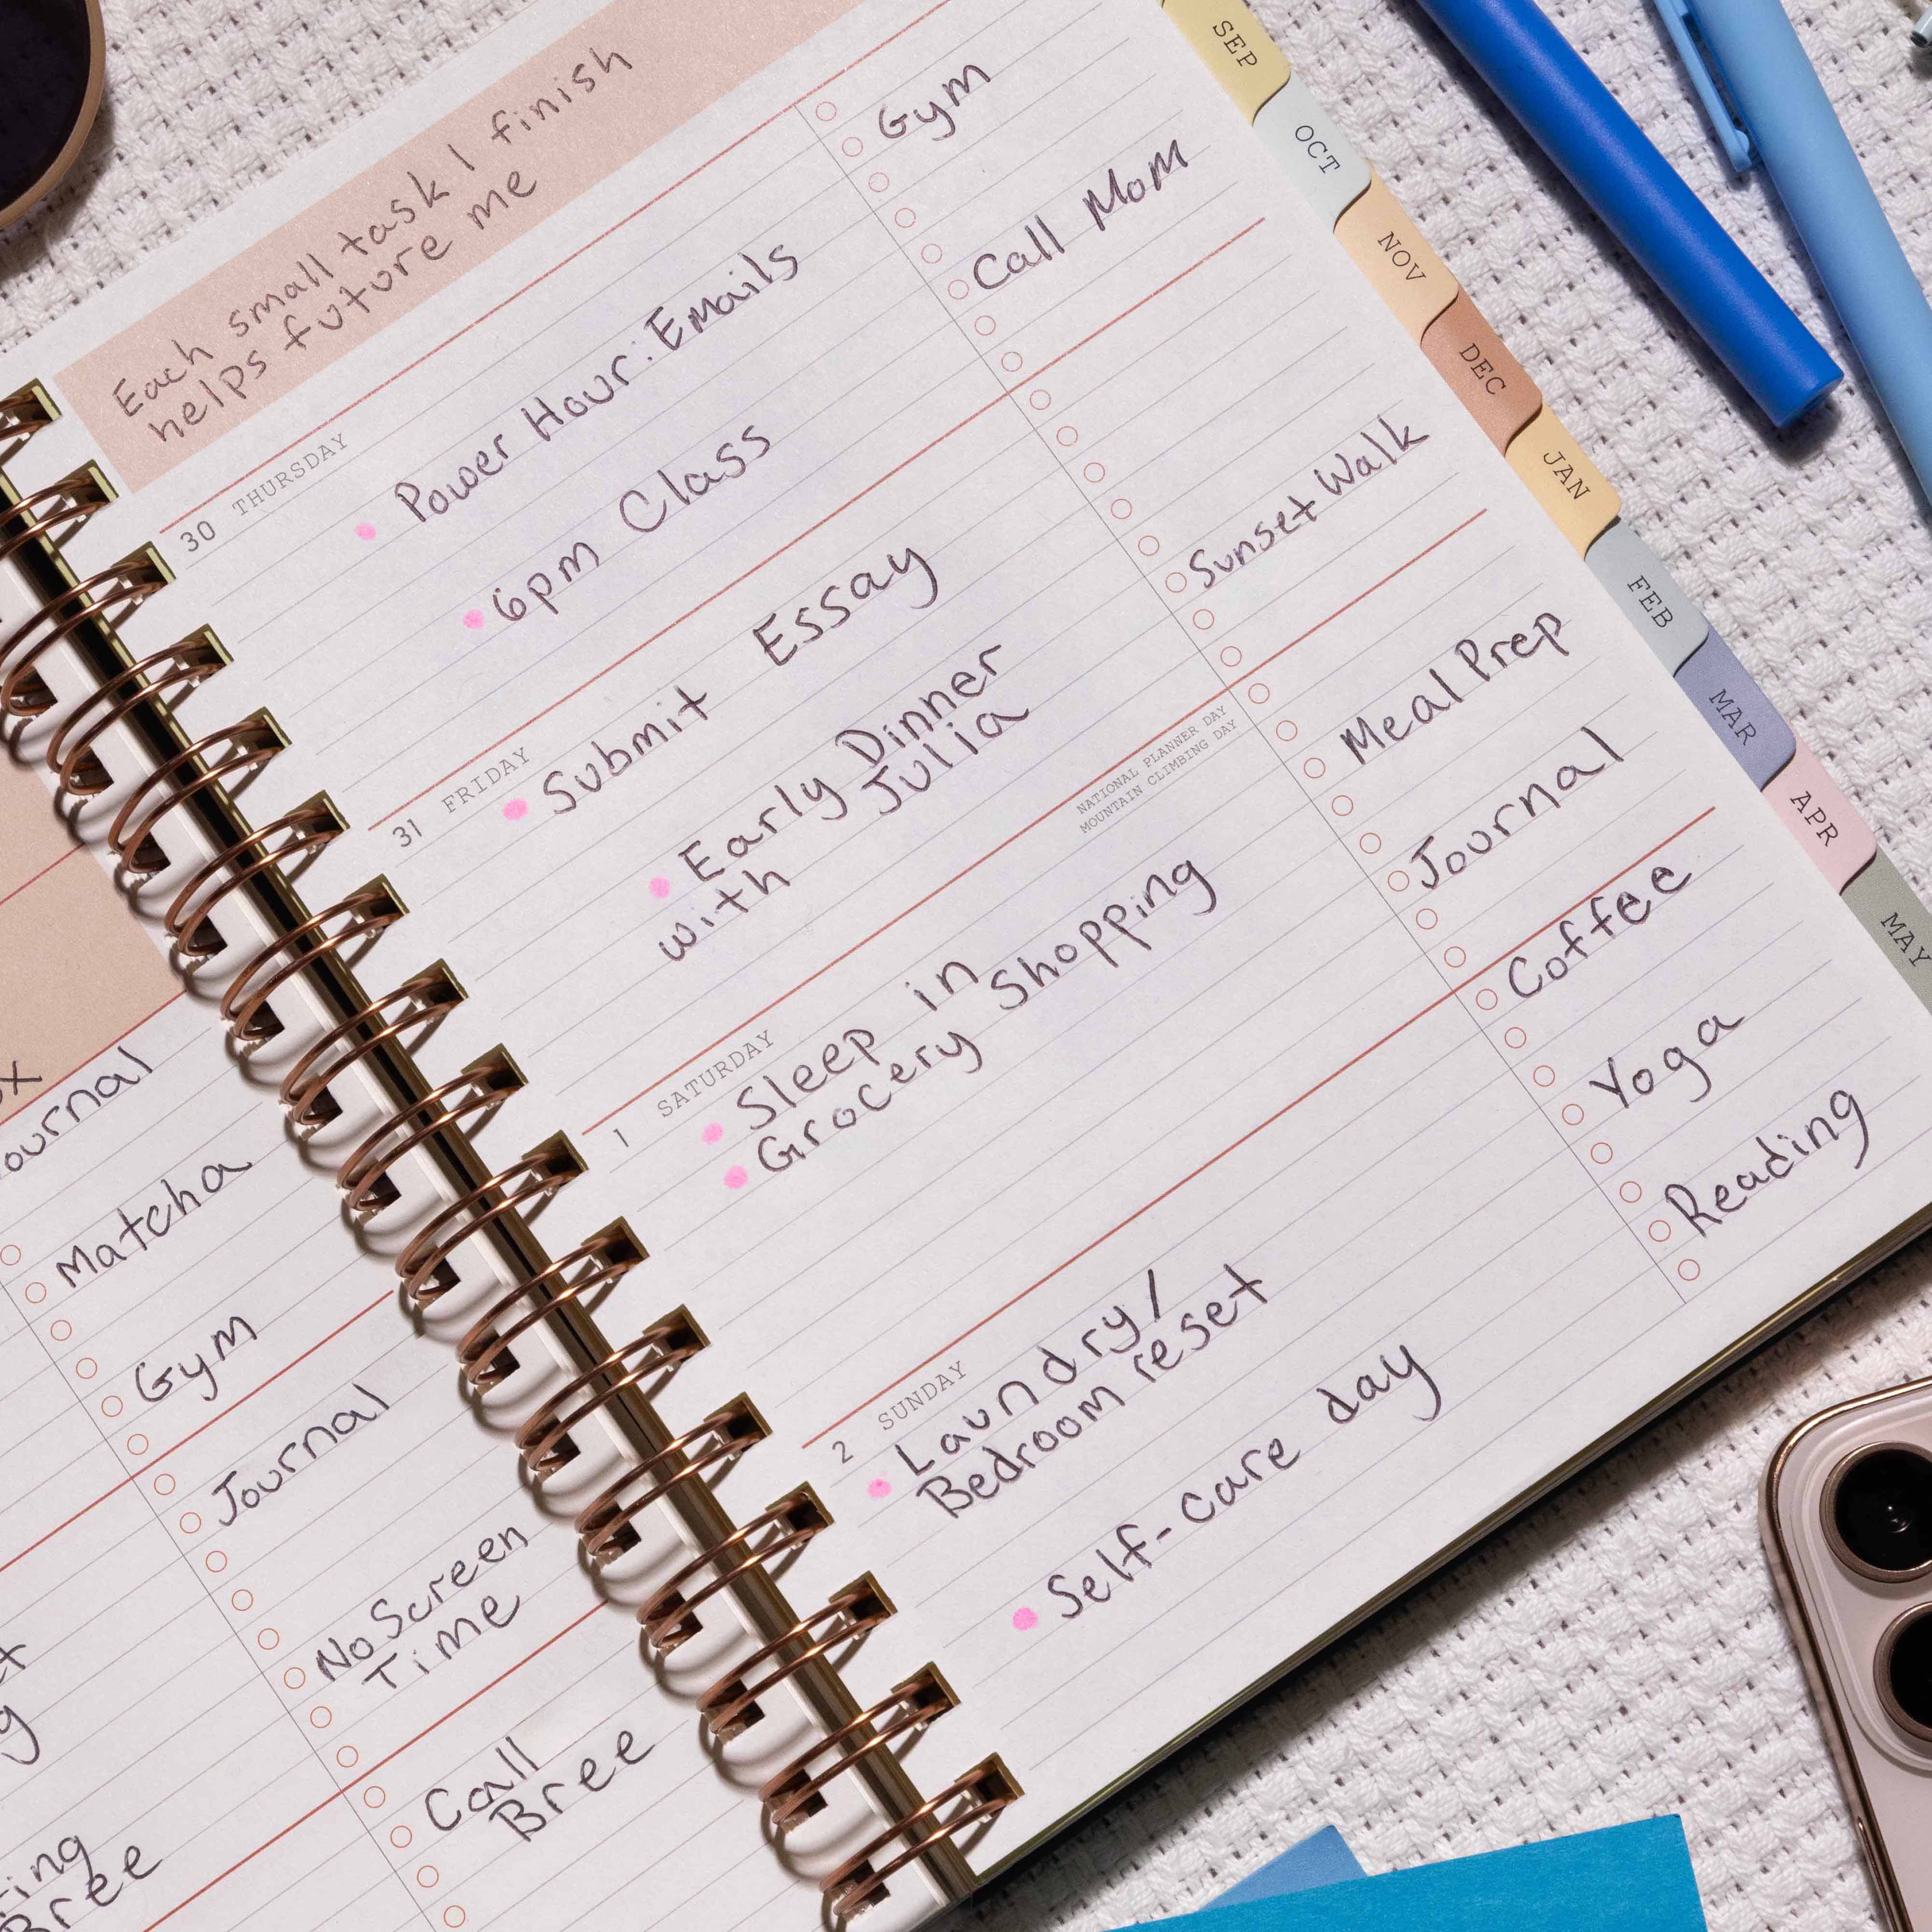 Each small task I finish
helps future me
30 THURSDAY
Power Hour: Emails
6pm Class
Gym
Call Mom
31 FRIDAY
Submit Essay
Early Dinner
with Julia
Sunset Walk
1 SATURDAY
NATIONAL PLANNER DAY
MOUNTAIN CLIMBING DAY
Sleep in
Grocery Shopping
Meal Prep
Journal
2 SUNDAY
Laundry/
Bedroom reset
Self-care day
Coffee
Yoga
Reading
SEP
OCT
NOV
DEC
JAN
FEB
MAR
APR
MAY
ournal
Matcha
Gym
Journal
No Screen
Time
Call
Bree
ing
Bree